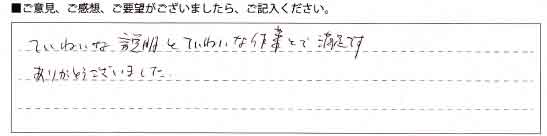 ■ご意見、ご感想、ご要望がございましたら、ご記入ください。
ていねいな説明とていねいな作業とで満足です
ありがとうございました。